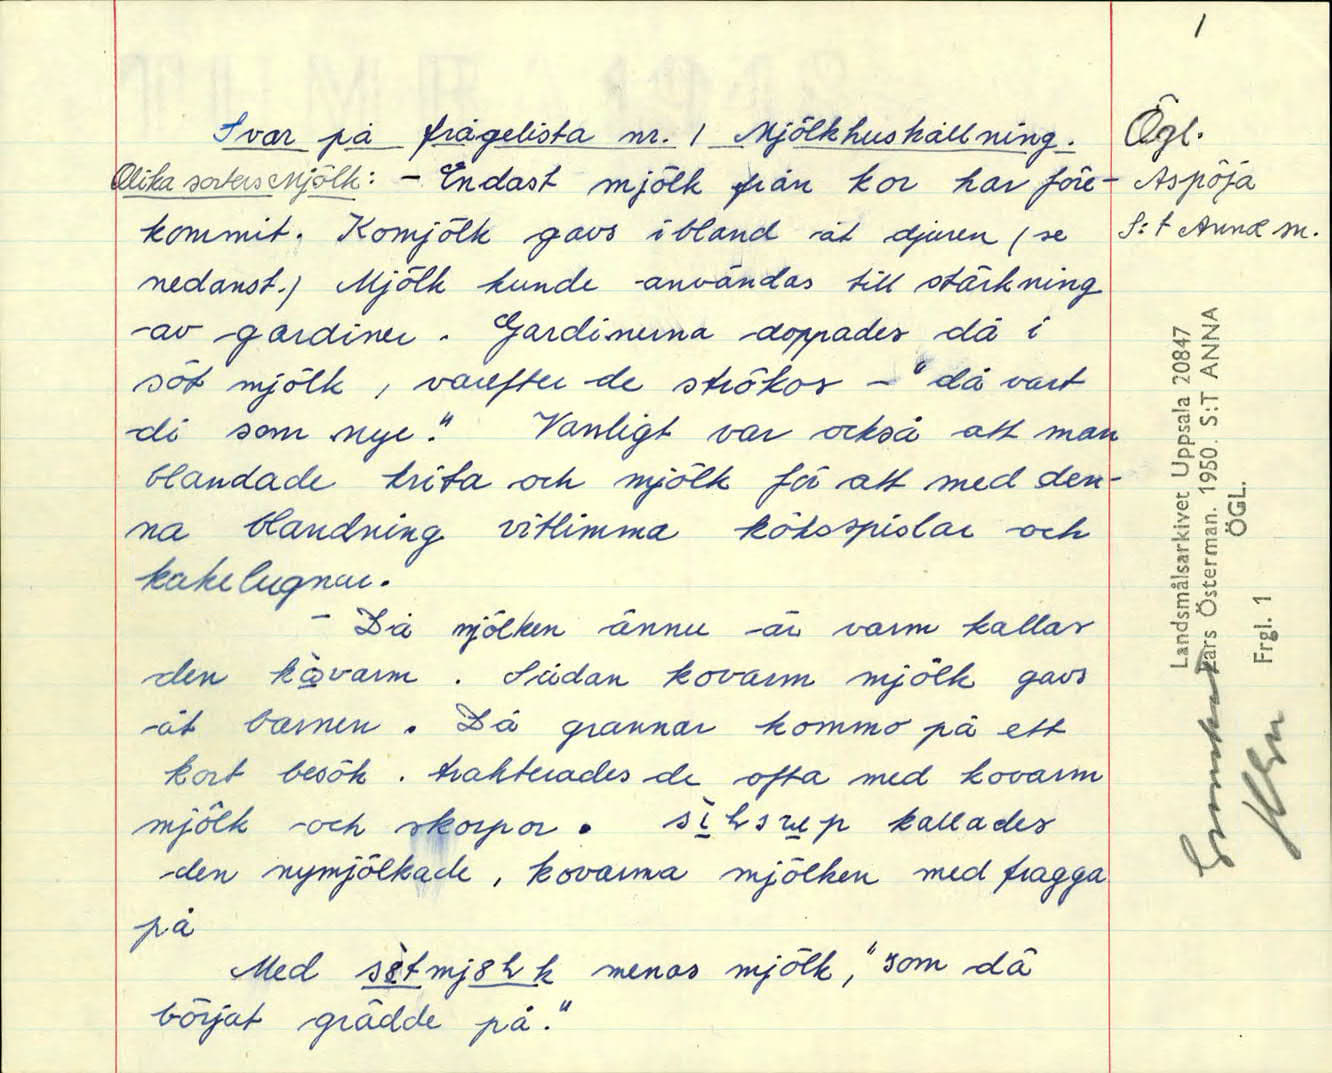 1
Svar på frågelista nr. 1 Mjölkhushållning.
Ögl.
Aspöja
S:t Anna sn.
Olika sorters Mjölk: - Endast mjölk från kor har före-
kommit. Komjölk gavs ibland åt djuren (se
nedanst.) Mjölk kunde användas till stärkning
av gardiner. Gardinerna doppades då i
söt mjölk, varefter de strökos - "då vart
di som nye." Vanligt var också att man
blandade krita och mjölk för att med den-
na blandning vitlimma köksspislar och
kakelugnar.
- Då mjölken ännu är varm kallas
den kòvarm. Sådan kovarm mjölk gavs
åt barnen. Då grannar kommo på ett
kort besök. trakterades de ofta med kovarm
mjölk och skorpor. kallades
den nymjölkade, kovarma mjölken med fragga
på
Med menas mjölk, "som då
börjat grädde på."
Landsmålsarkivet Uppsala 20847
Lars Österman. 1950. S:T ANNA
ÖGL.
Frgl. 1